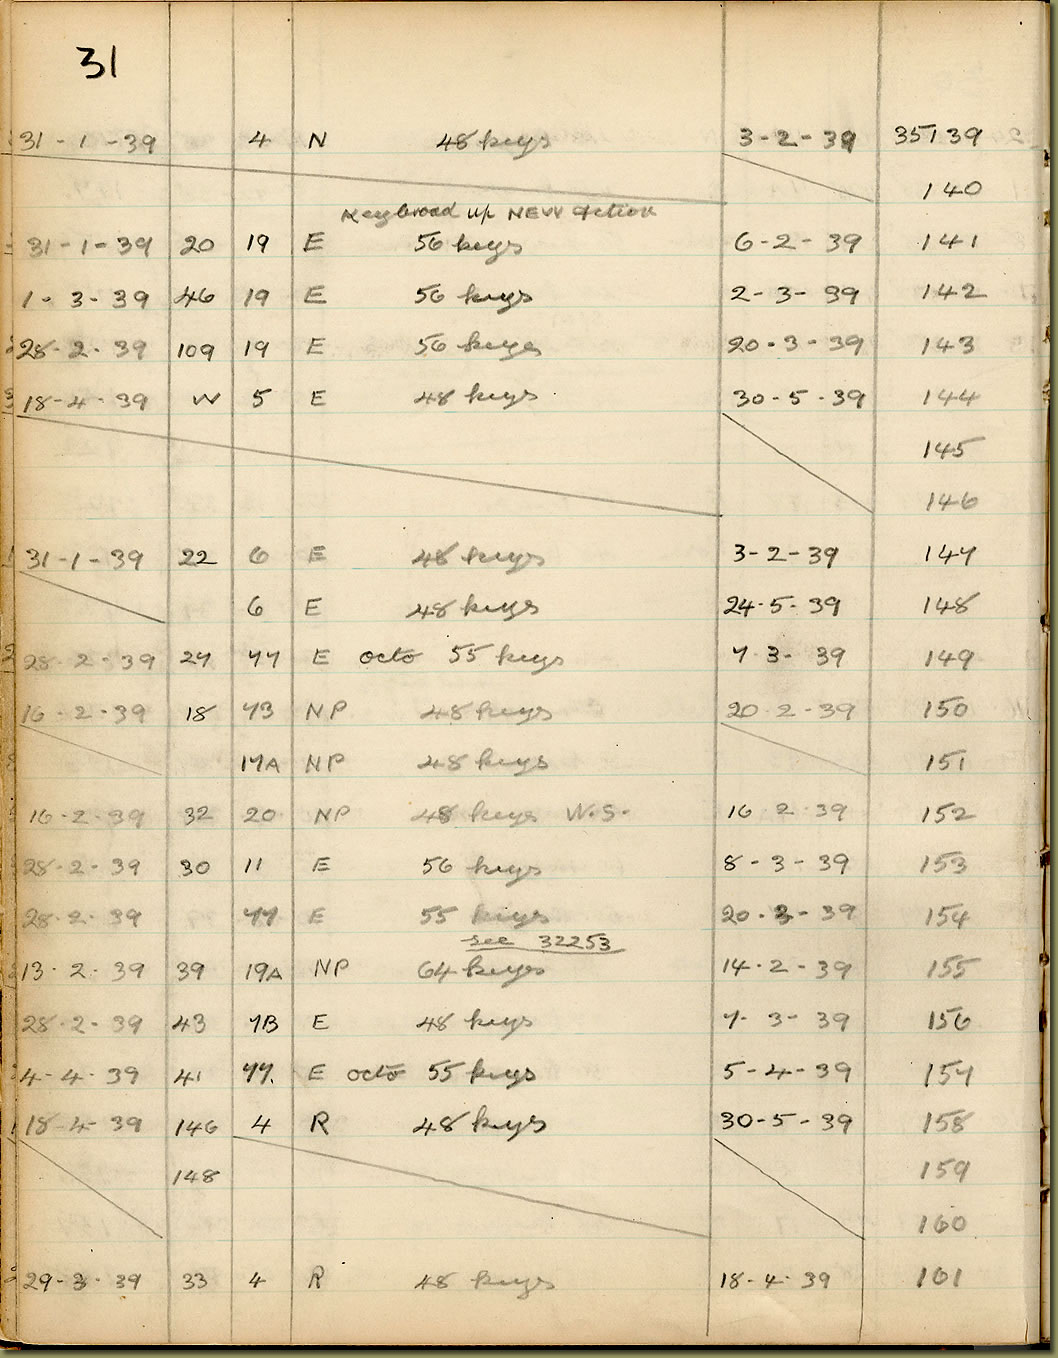 31
31-1-39 4 N 48 keys 3-2-39 35139
140
Keybroad up NEW action
31-1-39 20 19 E 56 keys 6-2-39 141
1-3-39 46 19 E 56 keys 2-3-39 142
28-2-39 109 19 E 56 keys 20-3-39 143
18-4-39 W 5 E 48 keys 30-5-39 144
145
146
31-1-39 22 6 E 48 keys 3-2-39 147
6 E 48 keys 24-5-39 148
28-2-39 27 77 E octo 55 keys 7-3-39 149
16-2-39 18 73 NP 48 keys 20-2-39 150
17A NP 48 keys 151
16-2-39 32 20 NP 48 keys W.S. 16-2-39 152
28-2-39 30 11 E 56 keys 8-3-39 153
28-2-39 77 E 55 keys 20-3-39 154
see 32253
13-2-39 39 19A NP 64 keys 14-2-39 155
28-2-39 43 7B E 48 keys 7-3-39 156
4-4-39 41 77. E octo 55 keys 5-4-39 157
18-4-39 146 4 R 48 keys 30-5-39 158
148 159
160
29-3-39 33 4 R 48 keys 18-4-39 161